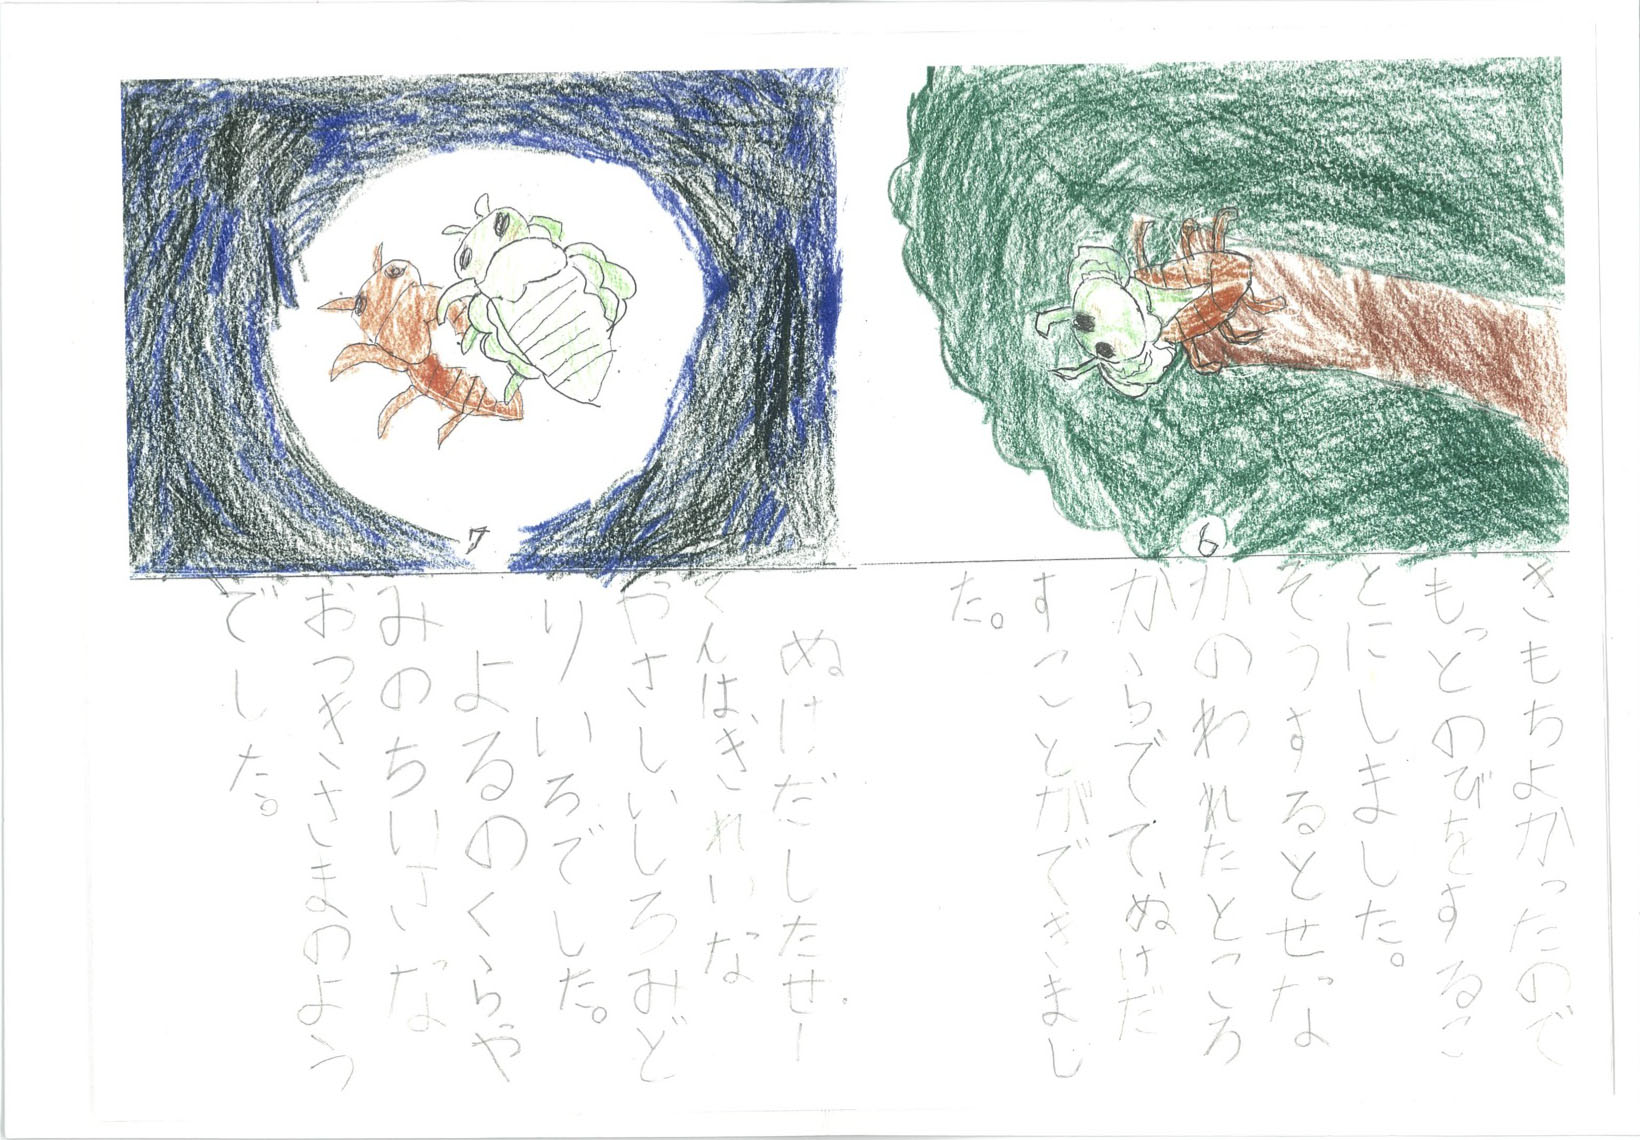 6
きもちよかったので
もっとのびをするこ
とにしました。
そうするとせな
かのわれたところ
からでてて、ぬけだ
すことができまし
た。
7
ぬけだしたせー
くんは、きれいな
やさしいしろみど
りいろでした。
よるのくらや
みのちいさな
おつきさまのよう
でした。